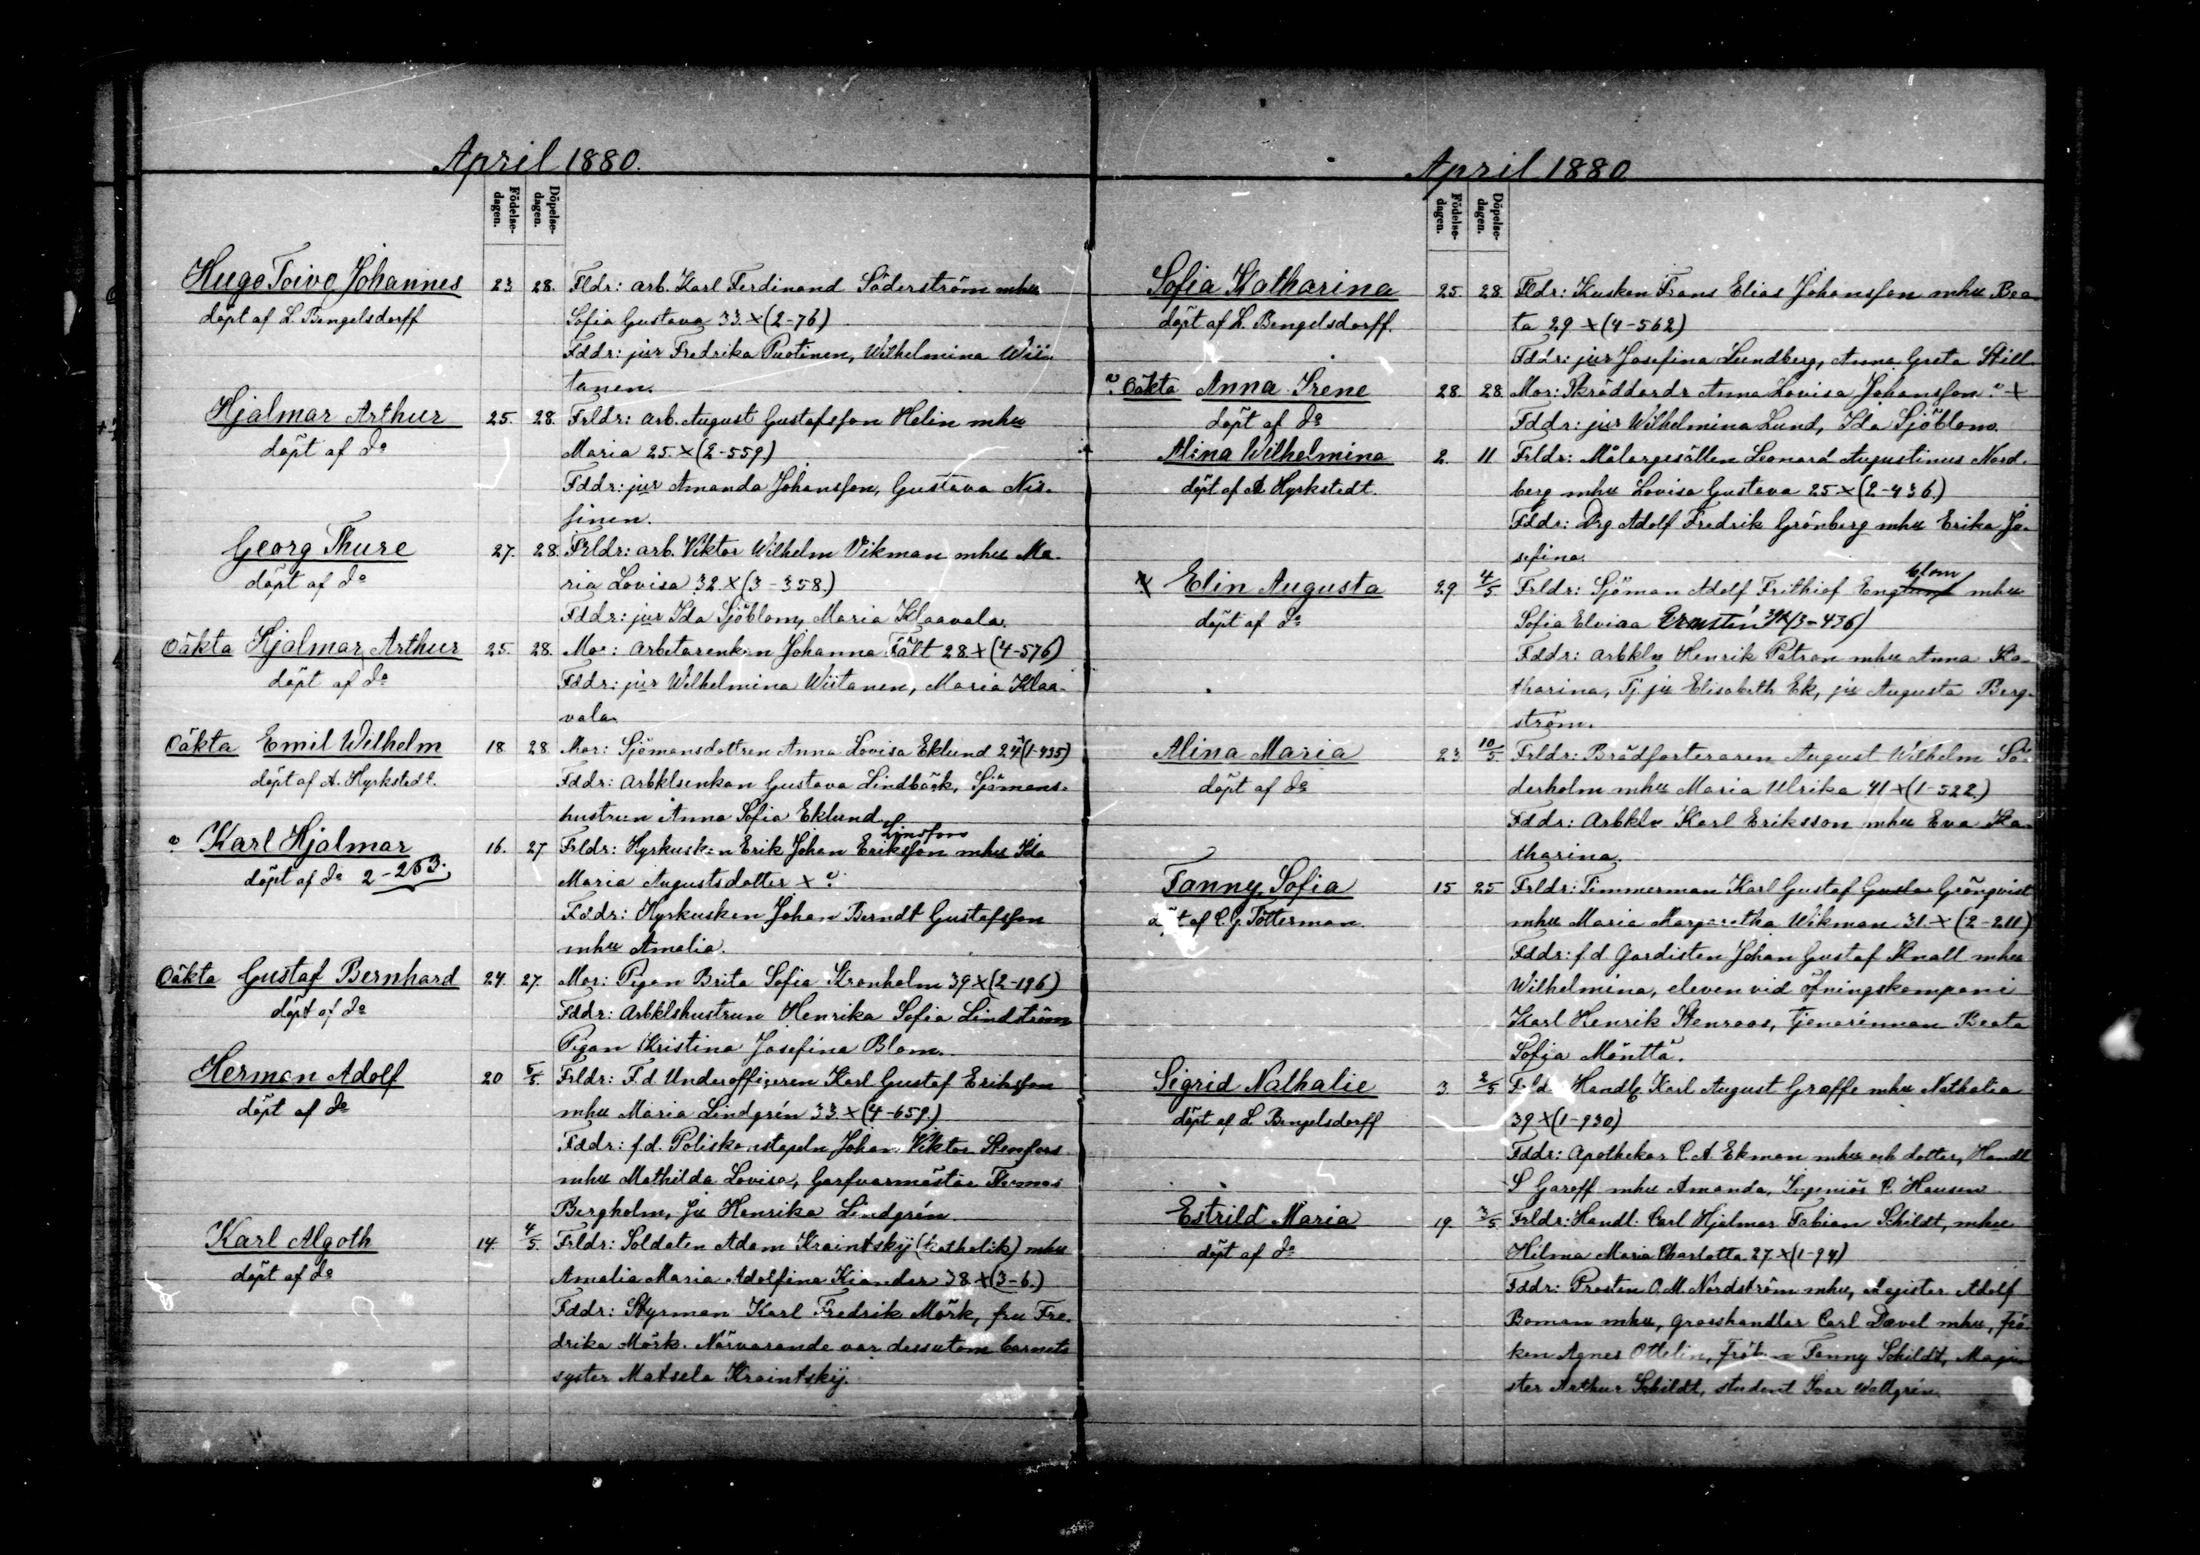 April 1880.
Födelse-
dagen.
Döpelse-
dagen.
Hugo Toivo Johannes 23 28. Fldr: arb. Karl Ferdinand Söderström mhu
döpt af L Bengelsdorff Sofia Gustava 33 x (2-76)
Fddr: jur Fredrika Puotinen, Wilhelmina Wii-
tanen.
Hjalmar Arthur 25. 28. Frldr: arb. August Gustafsson Helin mhu
döpt af do Maria 25 x (2-559)
Fddr: jur Amanda Johansson, Gustava Nis-
sinen.
Georg Thure 27. 28. Frldr: arb. Viktor Wilhelm Vikman mhu Ma-
döpt af do ria Lovisa 32 x (3-358.)
Fddr: jur Ida Sjöblom, Maria Klaavala.
Oäkta Hjalmar Arthur 25. 28. Mor: Arbetarenkan Johanna Fält 28 x (4-576)
döpt af do Fddr: jur Wilhelmina Wiitanen, Maria Klaa-
vala.
Oäkta Emil Wilhelm 18 28 Mor: Sjömansdottren Anna Lovisa Eklund 24 x (1-435)
döpt af A. Hyrkstedt. Fddr: Arbklsenkan Gustava Lindbäck, Sjömans-
hustrun Anna Sofia Eklund
Linsfors
Karl Hjalmar 16. 27 Frldr: Hyrkusken Erik Johan Eriksson mhu Ida
döpt af do 2-263. Maria Augustsdotter x
Fddr: Hyrkusken Johan Berndt Gustafsson
mhu Amalia.
Oäkta Gustaf Bernhard 24. 27. Mor: Pigan Brita Sofia Kronholm 39 x (2-196)
döpt af do Fddr: Arbklshustrun Henrika Sofia Lindström
Pigan Kristina Josefina Blom.
Herman Adolf 20 5/5. Frldr: F.d Underofficeren Karl Gustaf Eriksson
döpt af do mhu Maria Lindgrén 33 x (4-659.)
Fddr: f.d. Poliskonstapeln Johan Viktor Stenfors
mhu Mathilda Lovisa, Garfvarmästar Thomas
Bergholm, ju Henrika Lindgrén
Karl Algoth 14. 4/5. Frldr: Soldaten Adam Kraintskij (katholik) mhu
döpt af do Amalia Maria Adolfina Kiander 38 x (3-6.)
Fddr: Styrman Karl Fredrik Mörk, fru Fre-
drika Mörk. Närvarande var dessutom barnets
syster Matsela Kraintskij.
April 1880
Födelse-
dagen.
Döpelse-
dagen.
Sofia Katharina 25. 28. Fldr: Kusken Frans Elias Johansson mhu Bea-
döpt af L. Bengelsdorff. ta 29 x (4-562)
Fddr: jur Josefina Lundberg, Anna Greta Still
Oäkta Anna Irene 28. 28 Mor: Skräddardr Anna Lovisa Johansson x
döpt af do Fddr: jur Wilhelmina Lund, Ida Sjöblom.
Alina Wilhelmina 2. 11 Frldr: Målargesällen Leonard Augustinus Nord-
döpt af A Hyrkstedt. berg mhu Lovisa Gustava 25 x (2-436.)
Fddr: Drg Adolf Fredrik Grönberg mhu Erika Jo-
sefina.
blom
Elin Augusta 29 4/5 Frldr: Sjöman Adolf Frithiof Englund mhu
döpt af do Sofia Elviaa 34 x (3-436)
Fddr: Arbkln Henrik Patron mhu Anna Ka-
tharina, Tj. ju Elisabeth Ek, ju Augusta Berg-
ström.
Alina Maria 23 10/5. Frldr: Brädforteraren August Wilhelm Sö-
döpt af do derholm mhu Maria Ulrika 41 x (1-522.)
Fddr: Arbkln Karl Eriksson mhu Eva Ka-
tharina.
Fanny Sofia 15 25 Frldr: Timmerman Karl Gustaf Gustav Grönqvist
döpt af C. G. Tötterman. mhu Maria Margaretha Wikman 31. x (2-211)
Fddr: f.d Gardisten Johan Gustaf Knall mhu
Wilhelmina, eleven vid öfningskompani
Karl Henrik Stenroos, tjenarinnan Beata
Sofia Mänttä.
Sigrid Nathalie 3. 2/5 Frldr Handl. Karl August Graeffe mhu Nathalia
döpt af L. Bengelsdorff 39 x (1-930)
Fddr: Apothekar C. A. Ekman mhu och dotter, Handl
S Garoff mhu Amanda, Ingeniör C. Hausen
Estrild Maria 19. 3/5 Frldr: Handl. Carl Hjalmar Fabian Schildt, mhu
döpt af do Hilma Maria Charlotta 27 x (1-94)
Fddr: Prosten O. M. Nordström mhu, Magister Adolf
Boman mhu, grosshandlar Carl Dævel mhu, frö-
ken Agnes Ottelin, fröken Fanny Schildt, Magi-
ster Arthur Schildt, student Ivar Wallgrén